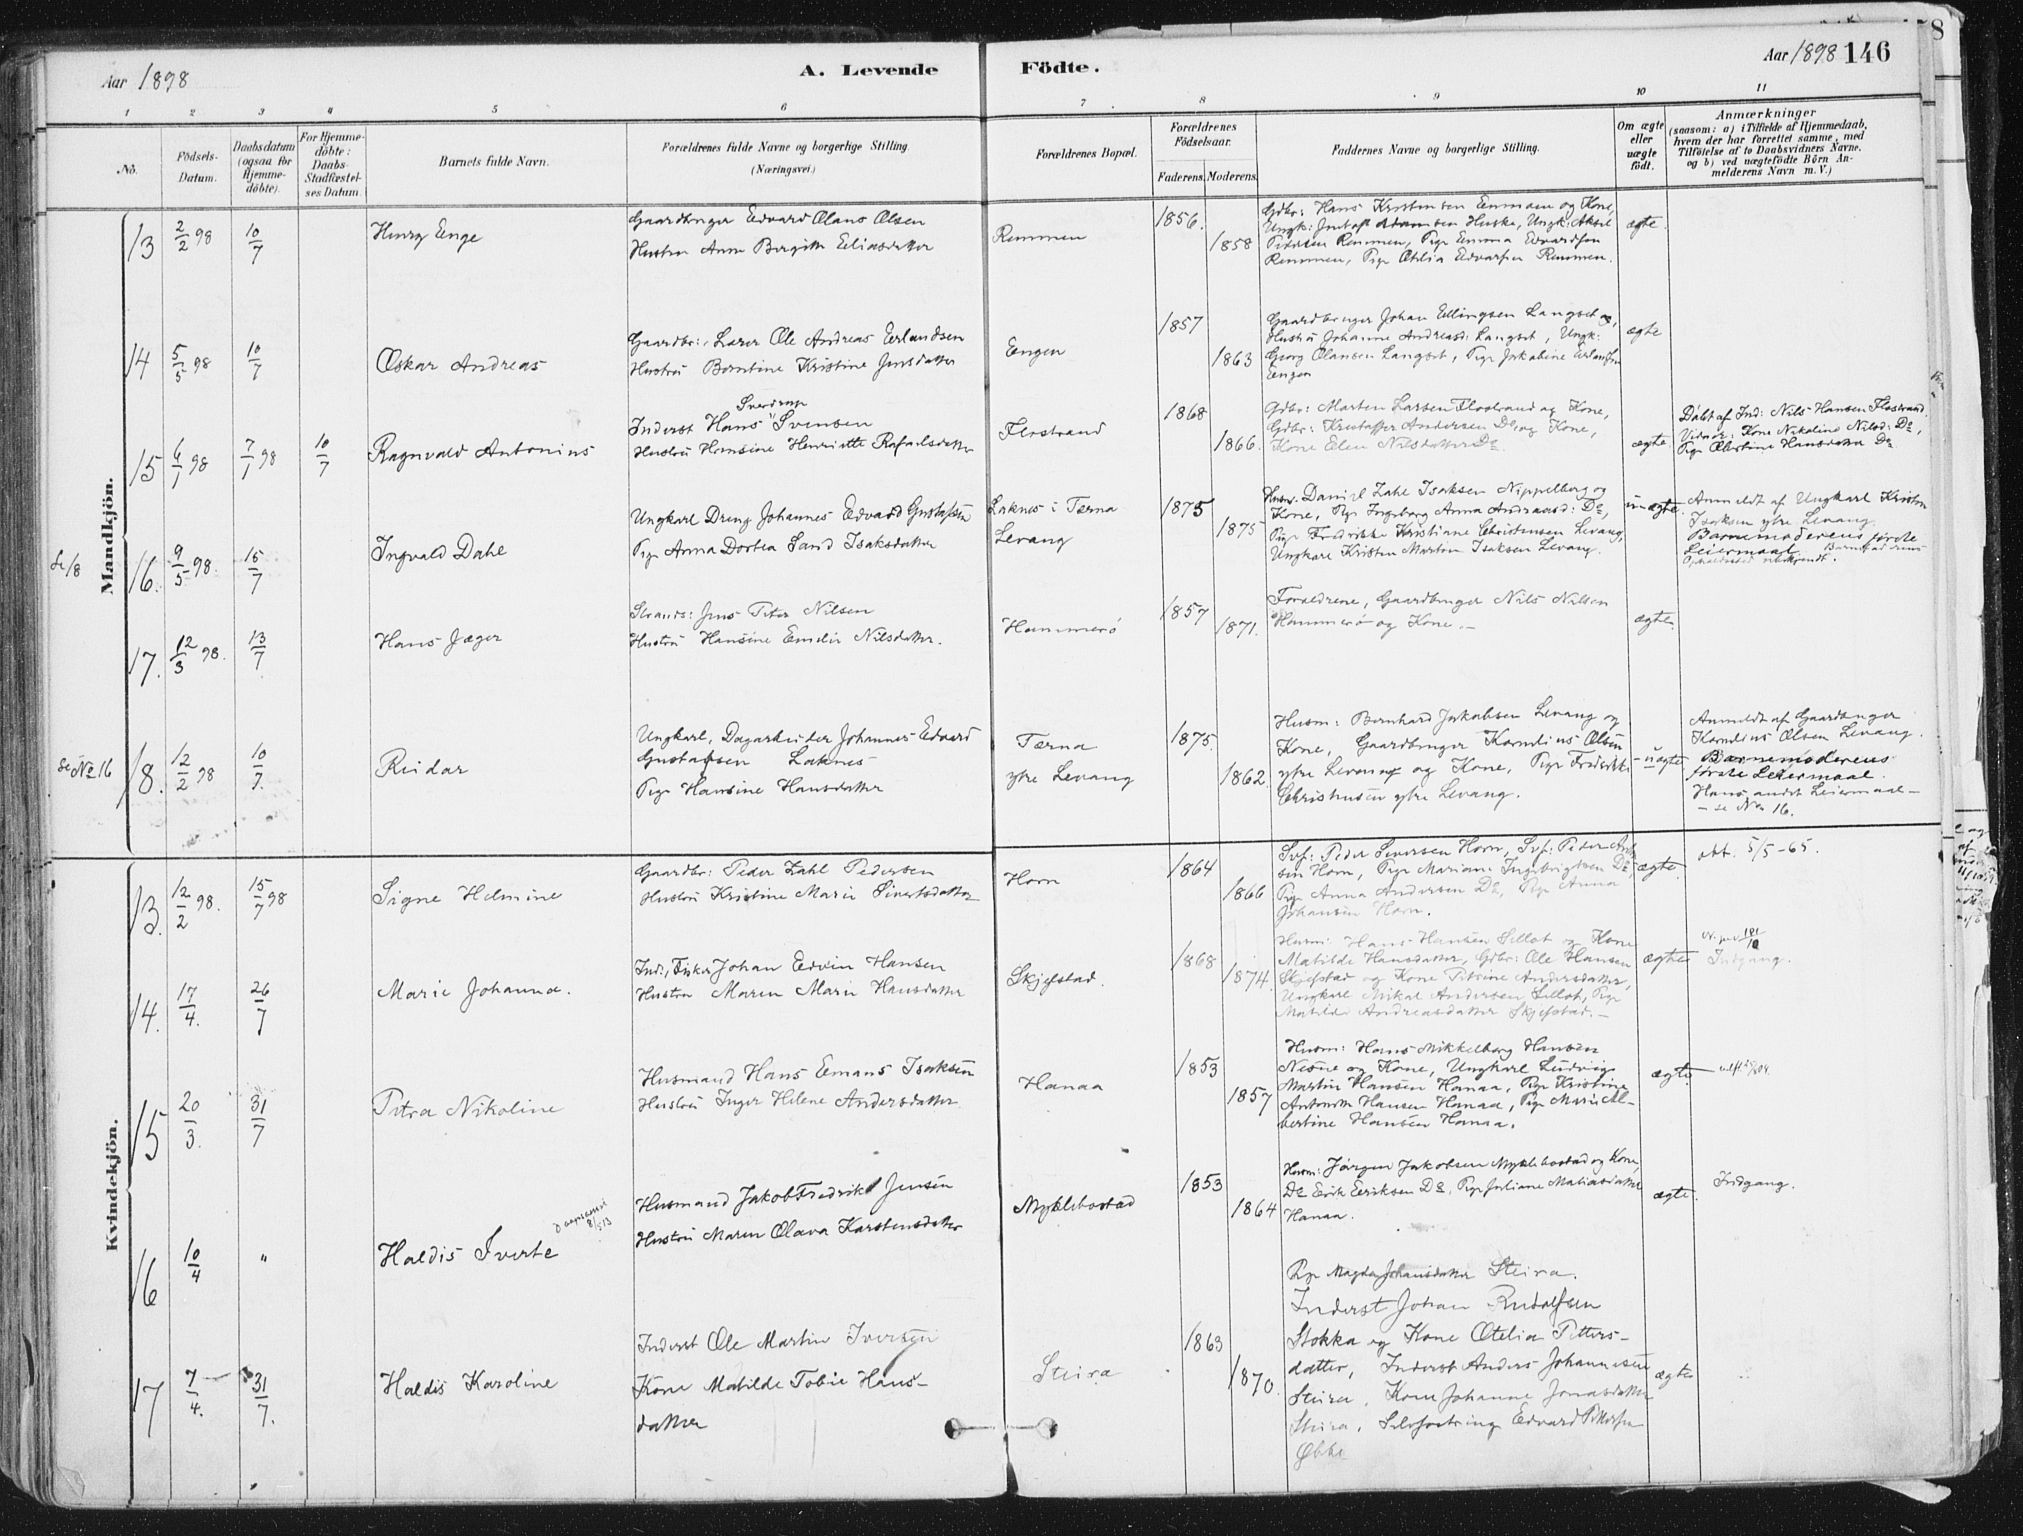 Aar 1898
A. Levende Födte.
Aar 1898 146
1 2 3 4 5 6 7 8 9 10 11
No.
Födsels-Datum.
Daabsdatum (ogsaa for Hjemme-döbte).
For Hjemme-döbte: Daabs-Stadfæstel-ses Datum.
Barnets fulde Navn.
Forældrenes fulde Navne og borgerlige Stilling.
(Næringsvei.)
Forældrenes Bopæl.
Forældrenes Födselsaar.
Faderens. Moderens.
Faddernes Navne og borgerlige Stilling.
Om ægte eller uægte födt.
Anmærkninger
(saasom: a) i Tilfælde af Hjemmedaab,
hvem der har forrettet samme, med
Tilföielse af to Daabsvidners Navne.
og b) ved uægtefödte Börn An-
melderens Navn m. V.)
Mandkjön.
13 2/2 98 10/7 Henry Enge
Gaardbruger Edvard Olaus Olsen
Hustru Anne Bergitte Eliasdatter
Remmen 1856. 1858
Gdbr: Hans Kristensen Enmoen og Kone,
Ungk: Adamsen Huske, Ungk: Aksel
Pedersen Remmen, Pige Emma Edvardsen
Remmen, Pige Otelia Edvarsen Remmen.
ægte.
14 5/5 98 10/7 Oskar Andreas
Gaardbr:, Lærer Ole Andreas Erlandsen
Hustru Berntine Kristine Jensdatter
Engen 1857 1863
Gaardbruger Johan Ellingsen Langset og
Hustru Johanne Andreasd: Langset, Ungk:
Georg Olausen Langset, Pige Jakobine Erlandsen
Engen
ægte
15 6/7 98 7/7 98 10/7 Ragnvald Antonius
Sverdrup
Inderst Hans Svensen
Hustru Hansine Henriette Rafaelsdatter
Flostrand 1868 1866.
Gdbr: Marten Larsen Flostrand og Kone,
Gdbr: Kristoffer Andersen Do og Kone,
Kone Elen Nilsdatter Do.
ægte
Döbt af Ind: Nils Hansen Flostrand,
Vidner: Kone Nikoline Nilsd: Do,
Pige Hansdatter Do
Se /8
16. 9/5 98. 15/7 Ingvald Dahl
Ungkarl Dreng Johannes Edvard Gustafsen
Pige Anna Dortea Sand Isaksdatter
Laknes i Tærna
Levang
1875 1875
Husm. Daniel Zahl Isaksen Nippelberg og
Kone, Pige Ingeborg Anna Andreasd: Do,
Pige Fredrikke Kristiane Christensen Levang,
Ungkarl Kristen Martin Isaksen Levang.
uægte.
Anmeldt af Ungkarl Kristen
Isaksen ytre Levang
Barnemoderens förste
Leiermaal. Barnefaderens
Opholdssted ubekjendt.
17. 12/3 98. 13/7 Hans Jæger
Strands: Jens Peter Nilsen
Hustru Hansine Emelie Nilsdatter.
Hammerö 1857 1871.
Forældrene, Gaardbruger Nils Nilsen
Hammerö og Kone.
ægte.
Se No 16
18. 12/2 98 10/7. Reidar
Ungkarl, Dagarbeider Johannes Edvard
Gustafsen Laknes
Pige Hansine Hansdatter
Tærna
ytre Levang
1875. 1862.
Husm: Bernhard Jakobsen Levang og
Kone, Gaardbruger Kornelius Olsen
ytre Levang og Kone, Pige Fredrikke
Christensen ytre Levang.
uægte
Anmeldt af Gaardbruger
Kornelius Olsen Levang.
Barnemoderens
förste Leiermaal.
Hans andet Leiermaal
- se No 16.
Kvindekjön.
13. 12/2 98. 15/7 98 Signe Helmine
Gaardbr: Peder Zahl Pedersen
Hustru Kristine Marie Sivertsdatter
Horn 1864 1866
Svf: Peder Seversen Horn, Svf: Peder
sen Horn, Pige Mariane Ingebrigtsen Do,
Pige Anna Andersen Do, Pige Anna
Johansen Horn.
ægte.
att. 5/5-65.
14. 17/4. 26/7 Marie Johanna.
Ind:, Fisker Johan Edvin Hansen
Hustru Maren Marie Hansdatter
Skjefstad. 1868 1874.
Husm: Hans Hansen Sellot og Kone
Matilde Hansdatter, Gdbr: Ole Hansen
Skjefstad og Kone Petrine Andersdatter,
Ungkarl Mikal Andersen Sellot, Pige
Matilde Andreasdatter Skjefstad.
ægte
Indgang.
15 20/3. 31/7 Petra Nikoline
Husmand Hans Emans Isaksen
Hustru Inger Helene Andersdatter
Hanaa 1853 1857
Husm: Hans Mikkelberg Hansen
Nesne og Kone, Ungkarl Ludvig
Martin Hansen Hanaa, Pige Kristine
Antonette Hansen Hanaa, Pige Marie Al-
bertine Hansen Hanaa.
ægte
16 10/4 " Haldis Iverte
8/5 13
Husmand Jakob Fredrik Jensen
Hustru Maren Olava Karstensdatter
Myklebostad 1853 1864
Husm: Jørgen Jakobsen Myklebostad og Kone,
Do Eerik Eeriksen Do, Pige Juliane Matiasdatter
Hanaa.
ægte.
Indgang.
17 7/4. 31/7. Haldis Karoline
Inderst Ole Martin Iversen
Kone Matilde Tobie Hans-
datter
Steira 1863 1870.
Pige Magda Johansdatter Steira.
Inderst Johan Rudolfsen
Stokka og Kone Otelia Petters-
datter, Inderst Anders Johannesen
Steira, Kone Johanne Jonasdatter
Steira, Edvard
ægte